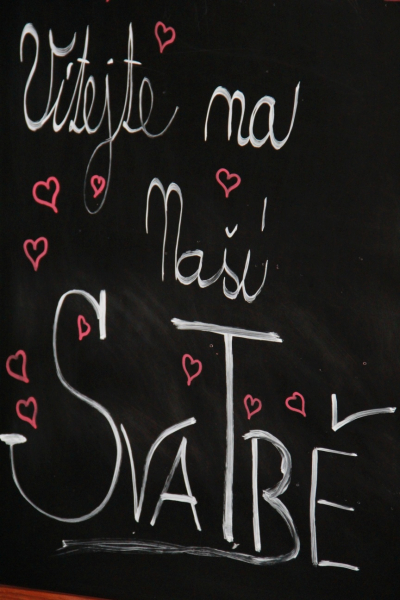 Vítejte na
Naší
SVATBĚ